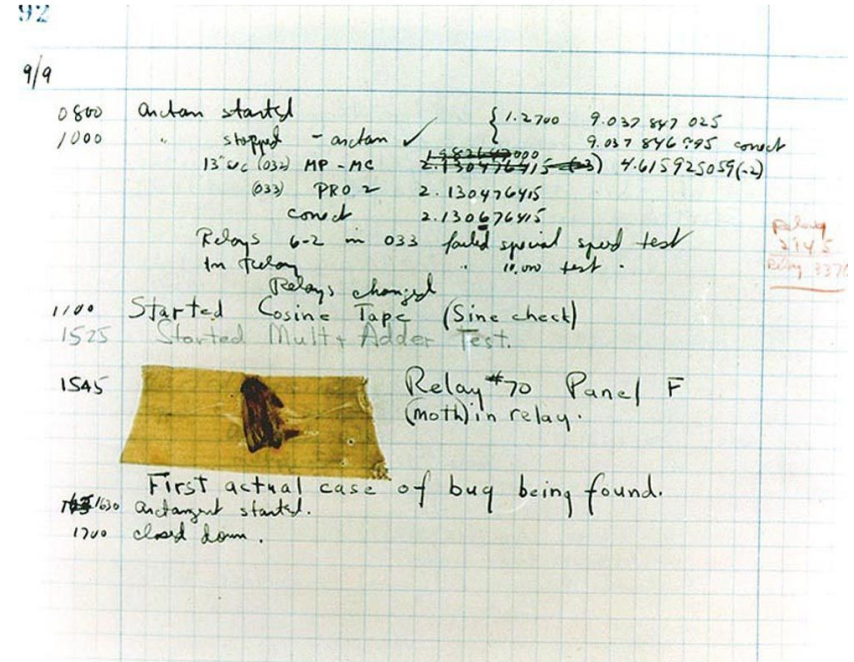 92
9/9
0800 arctan started { 1.2700 9.037 847 025
1000 " stopped - arctan ✓ 9.037 846 995 correct
13"uc (032) MP - MC 2.130476415 (-3) 4.615925059(-2)
(033) PRO 2 2.130476415
correct 2.130676415
Relays 6-2 in 033 failed special speed test
in relay " 10,000 test .
Relays changed
Relay
2145
Relay 3370
1100 Started Cosine Tape (Sine check)
1525 Started Mult + Adder Test.
1545 Relay #70 Panel F
(moth) in relay.
First actual case of bug being found.
1630 arctangent started.
1700 closed down.